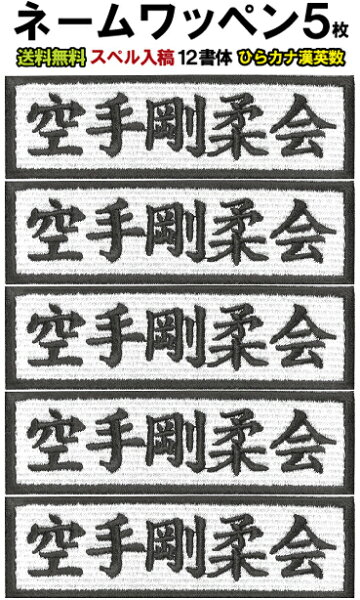 ネームワッペン5枚
送料無料 スペル入稿 12書体 ひらカナ漢英数
空手剛柔会
空手剛柔会
空手剛柔会
空手剛柔会
空手剛柔会